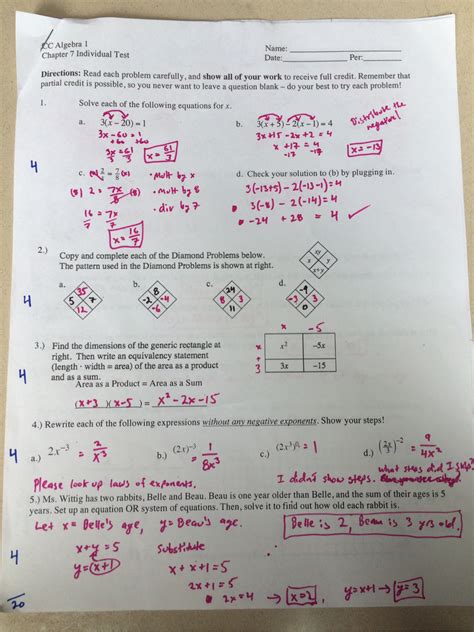 CC Algebra 1
Chapter 7 Individual Test
Name:
Date: Per:
Directions: Read each problem carefully, and show all of your work to receive full credit. Remember that
partial credit is possible, so you never want to leave a question blank – do your best to try each problem!
1. Solve each of the following equations for x.
a. 3(x – 20) = 1
3x - 60 = 1
+60 +60
3x = 61
3 3
x = 61/3
b. 3(x + 5) – 2(x – 1) = 4
Distribute the negative!
3x+15 -2x +2 = 4
x + 17 = 4
-17 -17
x = -13
4
c. (x) 2/x = 7/8 (x)
• mult by x
(8) 2 = 7x/8 (8) • mult by 8
16 = 7x • div by 7
7 7
x = 16/7
d. Check your solution to (b) by plugging in.
3(-13+5) - 2(-13-1) = 4
3(-8) - 2(-14) = 4
-24 + 28 = 4 ✓
2.) Copy and complete each of the Diamond Problems below.
The pattern used in the Diamond Problems is shown at right.
xy
x y
x+y
4
a. 35 5 7 12
b. 8 -2 -4 -6
c. 24 8 3 11
d. -9 -3 3 0
3.) Find the dimensions of the generic rectangle at
right. Then write an equivalency statement
(length · width = area) of the area as a product
and as a sum.
x -5
x x² -5x
+
3 3x -15
4
Area as a Product = Area as a Sum
(x+3)(x-5) = x² - 2x - 15
4.) Rewrite each of the following expressions without any negative exponents. Show your steps!
4
a.) 2x⁻³ = 2/x³
b.) (2x)⁻³ 1/8x³
c.) = 1
d.) = 9/4x²
what steps did I skip?
Please look up laws of exponents.
I didn't show steps.
5.) Ms. Wittig has two rabbits, Belle and Beau. Beau is one year older than Belle, and the sum of their ages is 5
years. Set up an equation OR system of equations. Then, solve it to find out how old each rabbit is.
Let x = Belle's age, y = Beau's age.
Belle is 2, Beau is 3 yrs old.
x + y = 5 Substitute
y = (x+1) x + x + 1 = 5
4
2x + 1 = 5
2x = 4 → x = 2, y = x+1 → y = 3
/20